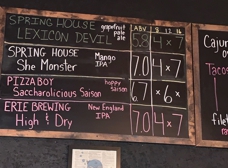 SPRING HOUSE grapefruit
LEXICON DEVIL pale ale
ABV 5 13 16
5.8 4 x 7
SPRING HOUSE Mango
She Monster IPA
7.0 4 x 7
PIZZA BOY hoppy
Saccharolicious Saison Saison
6.7 x 6 x
ERIE BREWING New England
High & Dry IPA
7.0 4 x 7
Cajun
Tacos